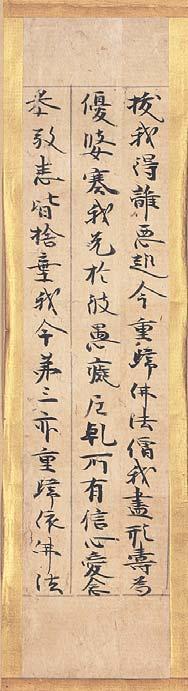 拔我得離惡趣今重歸佛法僧我盡形壽為
優婆塞我先於彼愚癡尼乹所有信心愛念
恭敬悉皆捨棄我今第三亦重歸依佛法